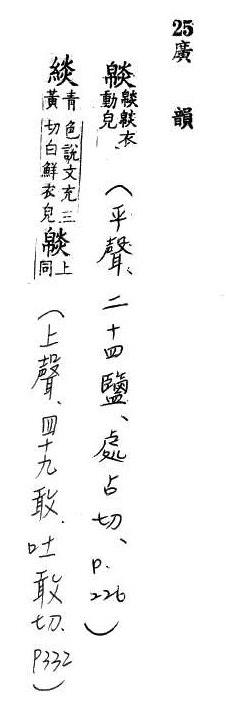 25廣韻
衣動皃（平聲、二十四鹽、處占切、P.226）
緂青黃色說文充三切白鮮衣皃上同（上聲、四十九敢、吐敢切、P332）